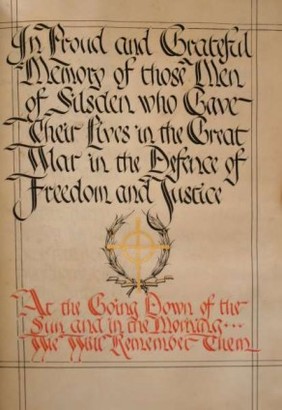 In Proud and Grateful
Memory of those Men
of Silsden who Gave
Their Lives in the Great
War in the Defence of
Freedom and Justice
At the Going Down of the
Sun and in the Morning...
We Will Remember Them